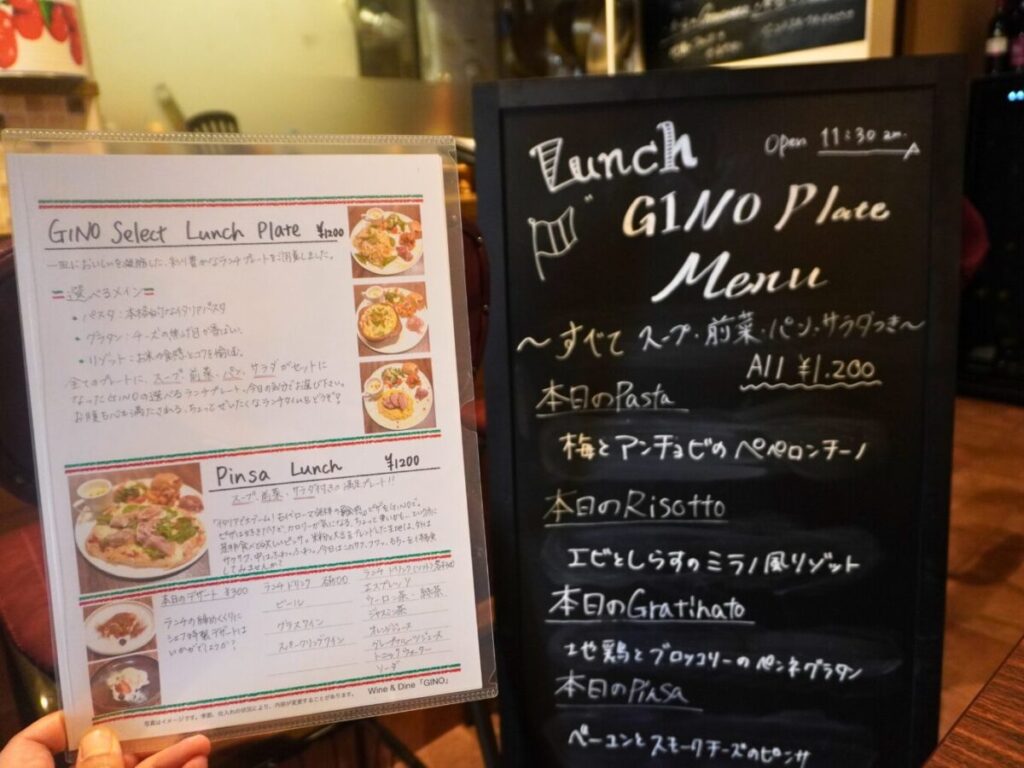 GINO Select Lunch Plate ¥1200
一皿においしいを凝縮した、彩り豊かなランチプレートをご用意しました。
選べるメイン
・パスタ：本格的なイタリアパスタ
・グラタン：チーズの焦げ目が香ばしい。
・リゾット：お米の食感とコクを愉しむ。
全てのプレートに、スープ・前菜・パン・サラダがセットに
なったGINOの選べるランチプレート。今日の気分でお選び下さい。
お腹も心も満たされる、ちょっとぜいたくなランチタイムをどうぞ!
Pinsa Lunch ¥1200
スープ・前菜・サラダ付きの満足プレート!!
してみませんか?
本日のデザート ¥300
ランチの締めくくりに
シェフ特製デザートは
いかがでしょうか?
ランチドリンク 各500
ビール
グラスワイン
スパークリングワイン
ランチドリンク(ソフト) 各300
エスプレッソ
ウーロン茶・緑茶
ジャスミン茶
オレンジジュース
グレープフルーツジュース
トニックウォーター
ソーダ
Wine & Dine「GINO」
写真はイメージです。季節、仕入れの状況により、内容が変更することがあります。
Lunch
Open 11:30 am.
GINO Plate
Menu
〜すべて スープ・前菜・パン・サラダつき〜
All ¥1.200
本日のPasta
梅とアンチョビのペペロンチーノ
本日のRisotto
エビとしらすのミラノ風リゾット
本日のGratinato
地鶏とブロッコリーのペンネグラタン
本日のPinsa
ベーコンとスモークチーズのピンサ